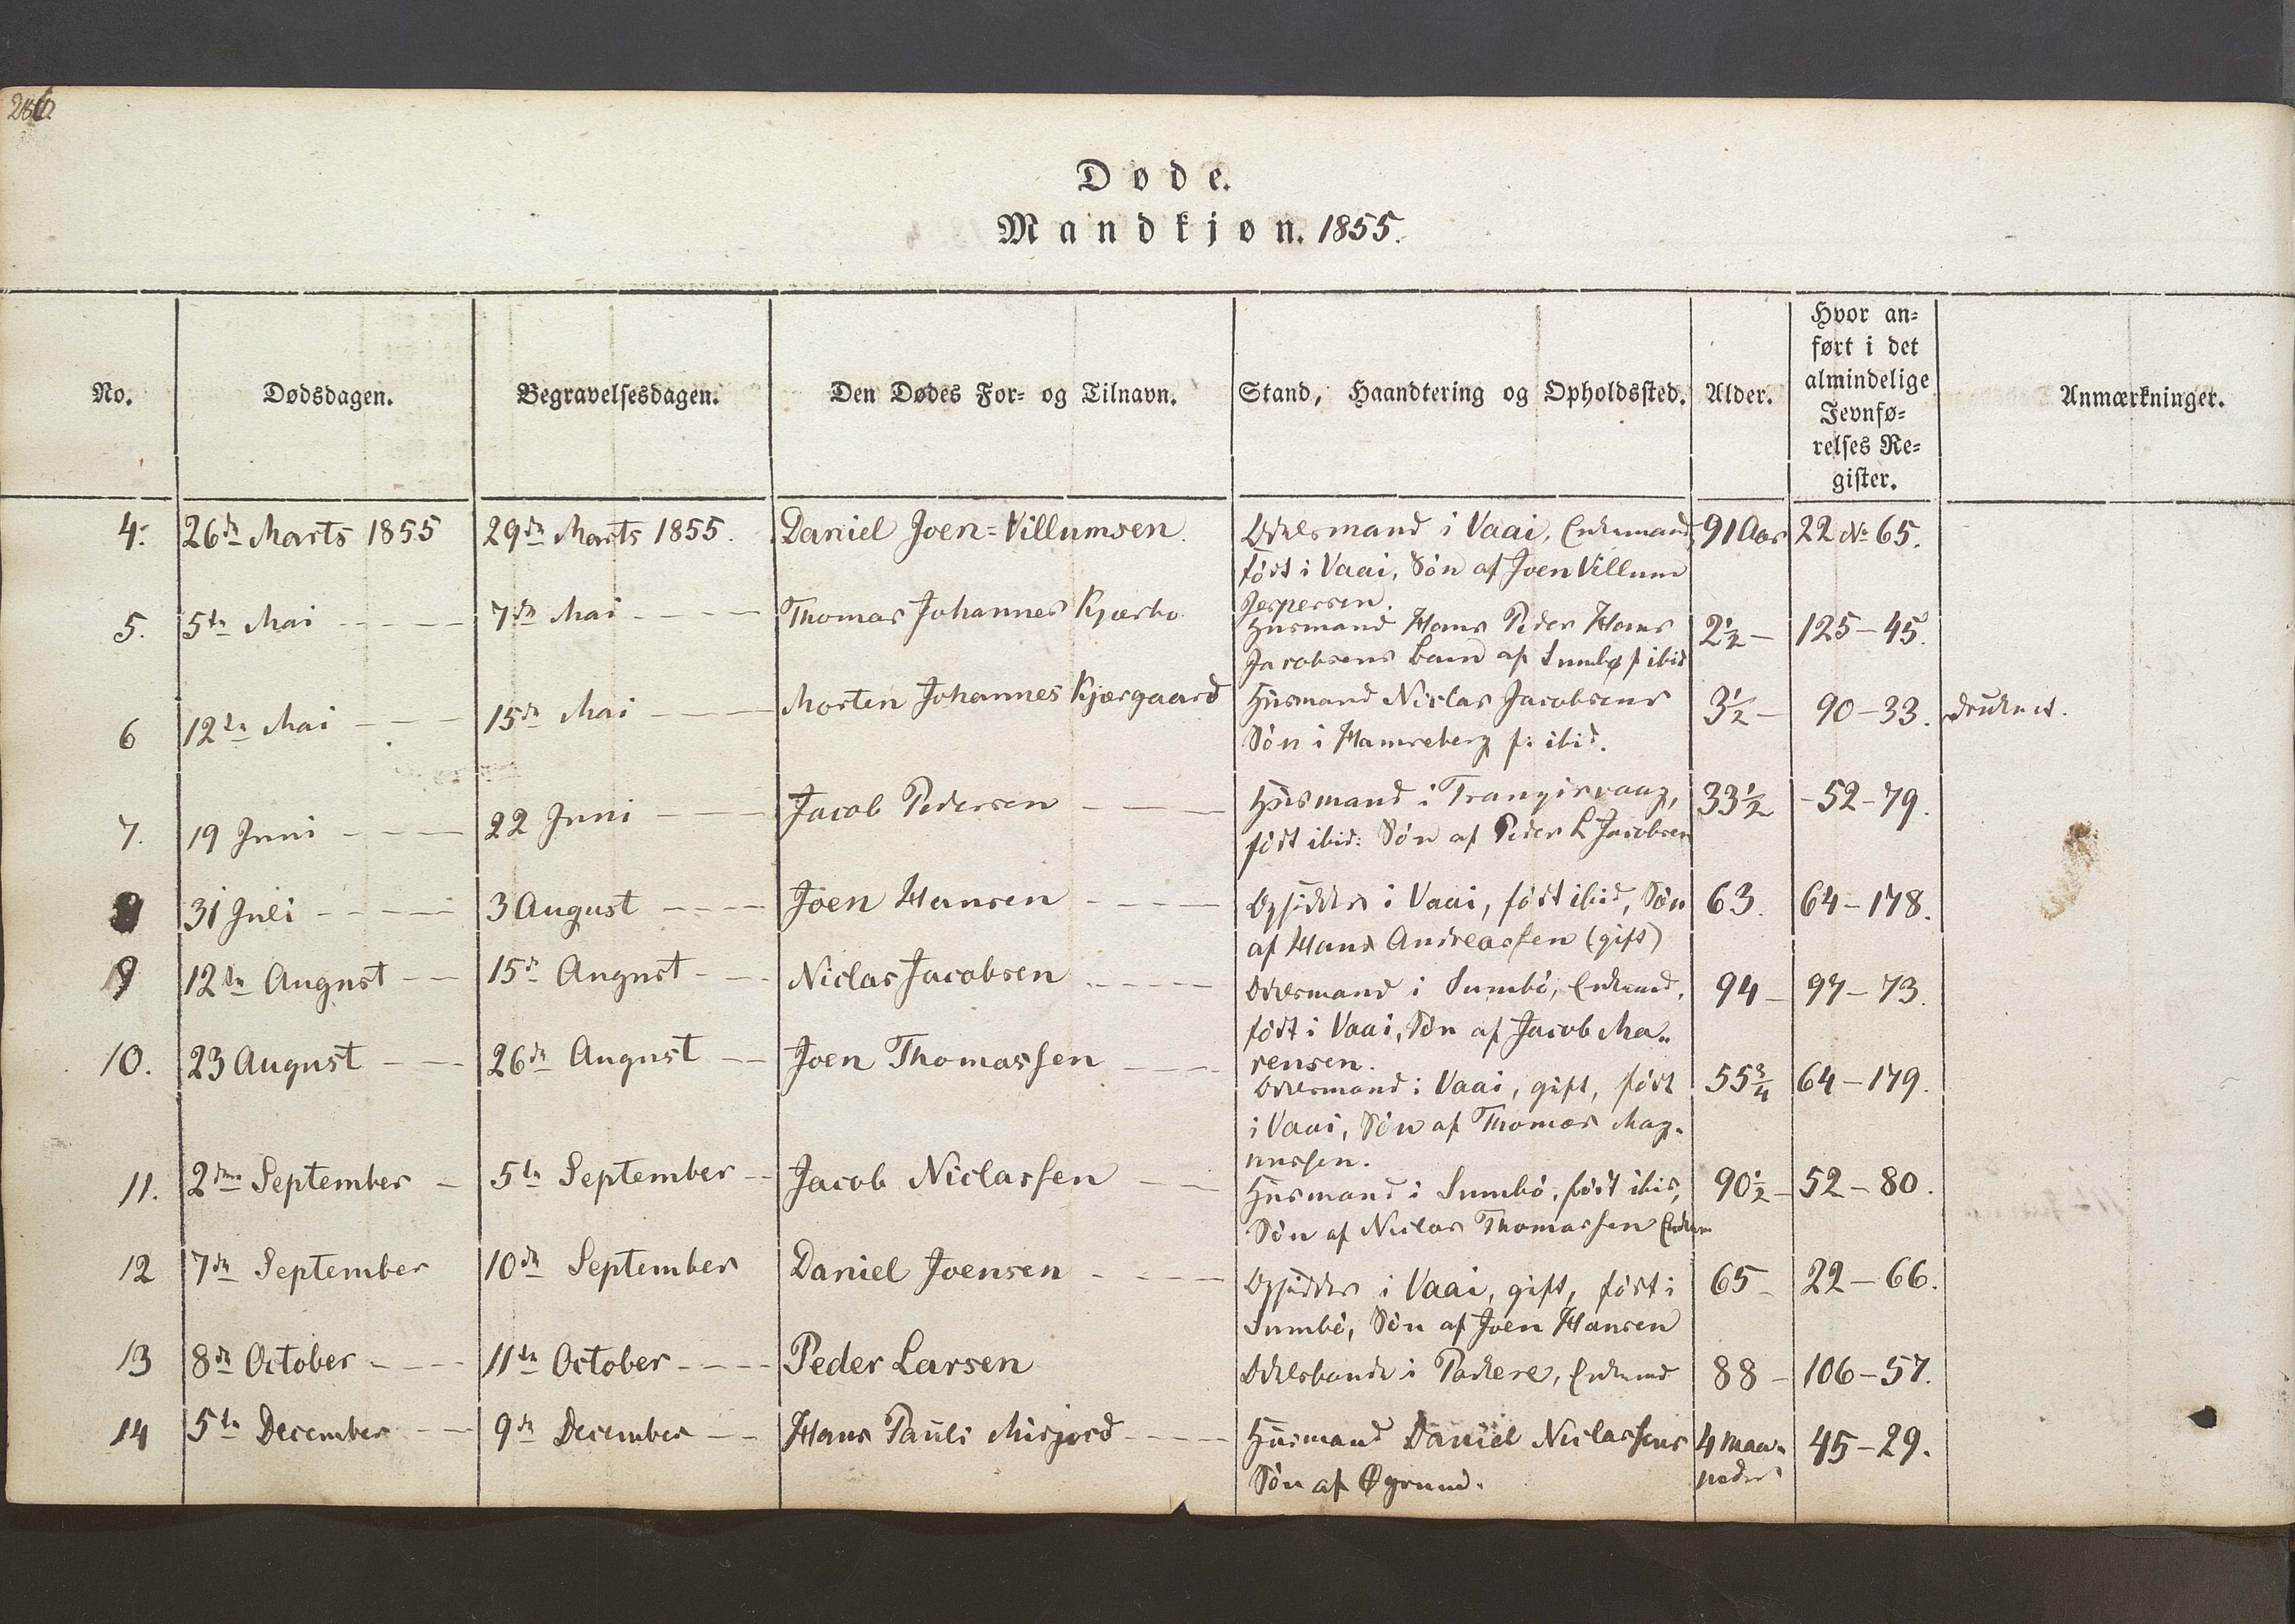 Døde.
Mandkjøn. 1855.
No. Dødsdagen. Begravelsesdagen. Den Dødes For- og Tilnavn. Stand, Haandtering og Opholdssted. Alder. Hvor an-
ført i det
almindelige
Jevnfø-
relses Re-
gister. Anmærkninger.
4. 26de Marts 1855 29de Marts 1855. Daniel Joen=Villumsen. Odelsmand i Vaai, Enkemand, 91 Aar 22 No 65.
født i Vaai, Søn af Joen Villum
Jespersen.
5. 5te Mai 7de Mai Thomas Johannes Kjærbo Husmand Hans Peder Hans 2½ — 125 — 45.
Jacobsens Barn af Sumbø f ibid
6 12te Mai 15de Mai Morten Johannes Kjærgaard Husmand Niclas Jacobsens 3½ — 90 — 33. druknet.
Søn i Hamreberg f: ibid.
7. 19 Juni 22 Juni Jacob Pedersen Husmand i Trangisvaag, 33½ - 52 - 79.
født ibid: Søn af Peder L Jacobsen
8 31 Juli 3 August Joen Hansen Opsidder i Vaai, født ibid, Søn 63. 64 — 178.
af Hans Andreassen (gift)
9 12te August 15de August Niclas Jacobsen Odelsmand i Sumbø, Enkemd. 94 — 97 — 73.
født i Vaai, Søn af Jacob Ma-
rensen.
10. 23 August 26de August Joen Thomassen Odelsmand i Vaai, gift, født 55¾ 64 — 179.
i Vaai, Søn af Thomas Mag-
nussen.
11. 2den September 5te September Jacob Niclassen Husmand i Sumbø, født ibid, 90½ — 52 — 80.
Søn af Niclas Thomassen Enkem
12 7de September 10de September Daniel Joensen Opsidder i Vaai, gift, født i 65 — 22 — 66.
Sumbø, Søn af Joen Hansen
13 8de October 11te October Peder Larsen Odelsbonde i Porkere, Enkemd 88 — 106 — 57.
14 5te December 9de December Hans Pauli Misjord Husmand Daniel Niclassens 4 Maa- 45 — 29.
Søn af Øgrund. neder